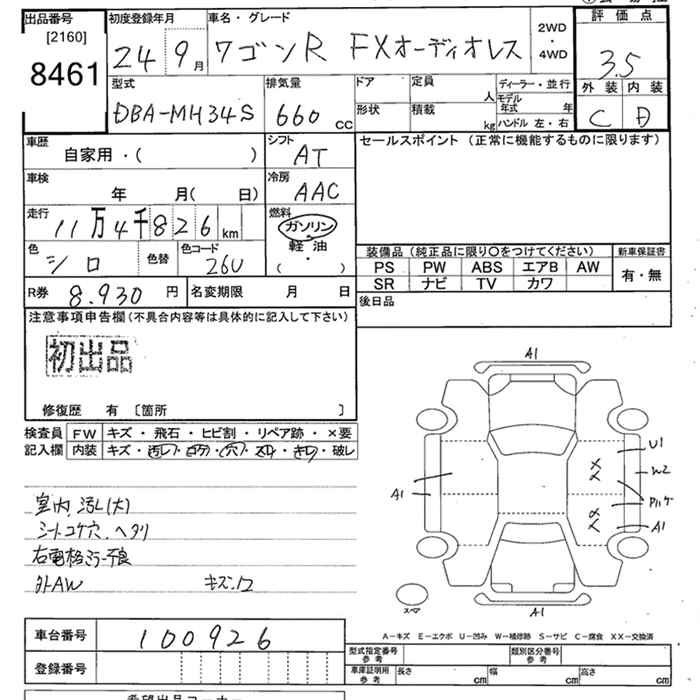 出品番号
[2160]
8461
初度登録年月
24 9月
車名・グレード
ワゴンR FXオーディオレス
2WD
・
4WD
評価点
3.5
外装 内装
C D
型式
DBA-MH34S
排気量
660 CC
ドア
定員
人
形状
積載
kg
ディーラー・並行
モデル年式 年
ハンドル 左・右
車歴
自家用・( )
シフト
AT
セールスポイント (正常に機能するものに限ります)
車検
年 月( 日)
冷房
AAC
走行
11万4千826 km
燃料
ガソリン
軽油
( ・ )
色
シロ
色替
色コード
26U
装備品 (純正品に限り○をつけてください)
新車保証書
PS PW ABS エアB AW
SR ナビ TV カワ
有・無
R券
8.930 円
名変期限 月 日
後日品
注意事項申告欄(不具合内容等は具体的に記入して下さい)
初出品
修復歴 有 [箇所 ]
検査員
記入欄
FW キズ・飛石・ヒビ割・リペア跡・×要
内装 キズ・汚レ・コゲ・穴・スレ・キレ・破レ
室内汚レ(大)
シートコゲ穴、ヘタリ
右電格ミラー不良
外AW キズ.12
A1
U1
W2
A1
A1
A1
スペア
A-キズ E-エクボ U-凹み W-補修跡 S-サビ C-腐食 XX-交換済
車台番号
100926
登録番号
型式指定番号
参考
類別区分番号
参考
車庫証明用
参考
長さ cm
幅 cm
高さ cm
希望出品コーナー